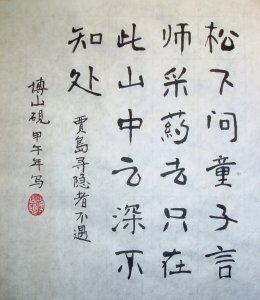 松下问童子言
师采药去只在
此山中云深不
知处
賈島寻隐者不遇
博山硯甲午年写